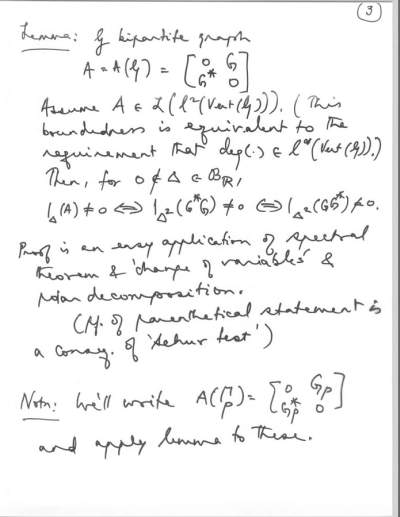 3
Lemma: G bipartite graph
A = A(G) = [ 0 G
G* 0 ]
Assume A ∈ L(l²(Vert(G))). (This
boundedness is equivalent to the
requirement that deg(·) ∈ l^∞(Vert(G)).)
Then, for 0 ∉ Δ ∈ B_ℝ,
1_Δ(A) ≠ 0 ⇔ 1_Δ²(G*G) ≠ 0 ⇔ 1_Δ²(GG*) ≠ 0.
Proof is an easy application of spectral
theorem & 'change of variables' &
polar decomposition.
(Pf. of parenthetical statement is
a conseq. of 'Schur test')
Notn: We'll write A(Γ_P) = [ 0 G_P
G_P* 0 ]
and apply lemma to these.